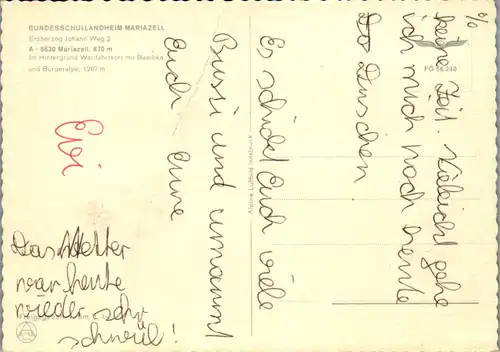 BUNDESSCHULLANDHEIM MARIAZELL
Erzherzog Johann Weg 2
A - 8630 Mariazell, 870 m
Im Hintergrund Wallfahrtsort mit Basilika
und Bürgeralpe, 1267 m
FÖ 56 240
Alpine Luftbild Innsbruck
keine Zeit. Vieleicht gehe
ich mich noch heute
Duschen
Es schickt Euch viele
Bussi und umarmt
Euch Eure
Evi
Das Wetter
war heute
wieder sehr
schwül!